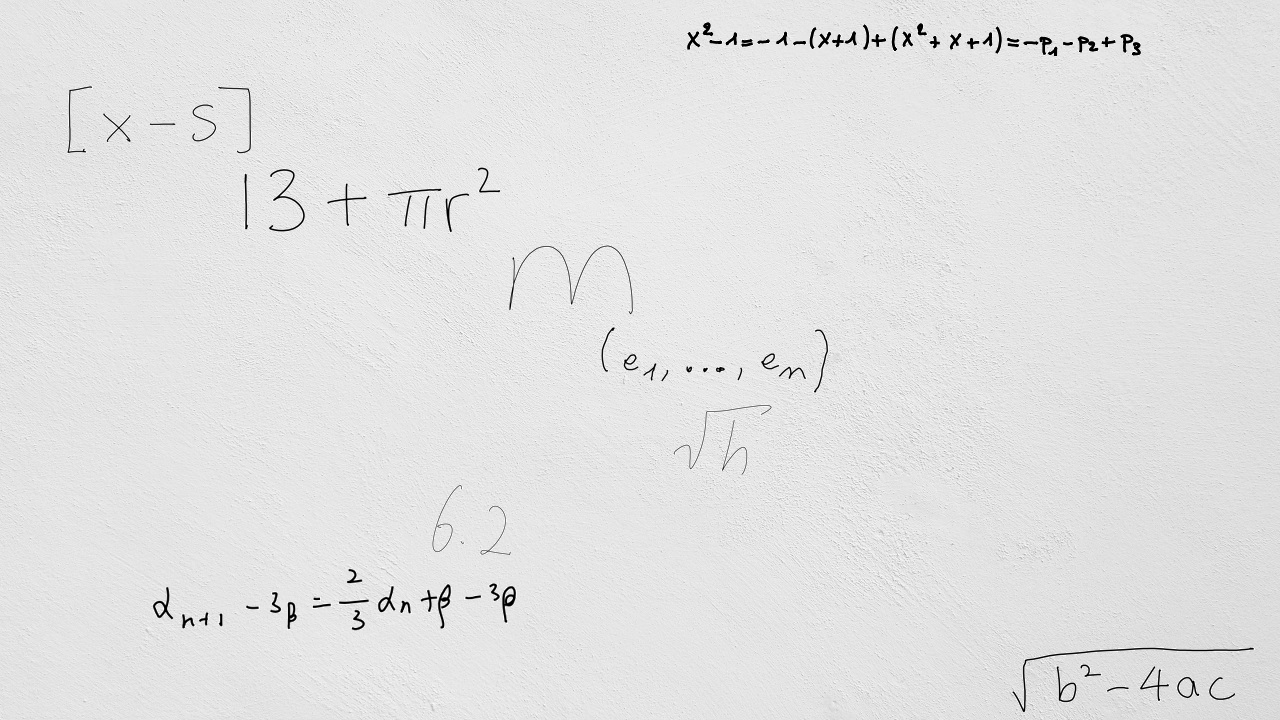 x²-1=-1-(x+1)+(x²+x+1)=-p₁-p₂+p₃
[x-s]
13+πr²
m
(e₁,...,eₙ)
√h
6.2
αₙ₊₁-3β=2/3 αₙ+β-3β
√(b²-4ac)